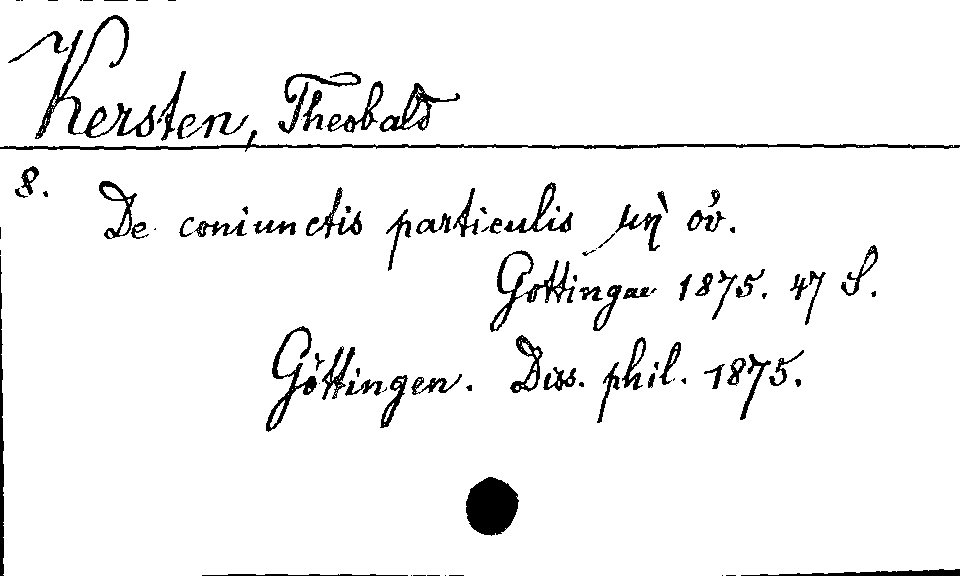 Kersten, Theobald
8.
De coniunctis particulis μὴ οὐ.
Gottingae 1875. 47 S.
Göttingen. Diss. phil. 1875.